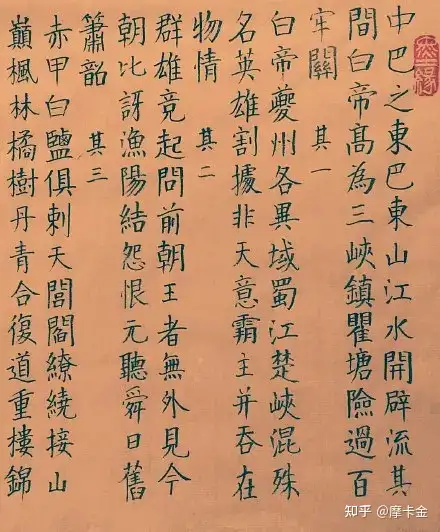 中巴之東巴東山江水開辟流其
間白帝高為三峽鎮瞿塘險過百
牢關 其一
白帝夔州各異域蜀江楚峽混殊
名英雄割據非天意霸主并吞在
物情 其二
群雄竞起問前朝王者無外見今
朝比訝漁陽結怨恨元聽舜日舊
簫韶 其三
赤甲白鹽俱刺天閭閻繚繞接山
巔楓林橘樹丹青合復道重樓錦
知乎 @摩卡金